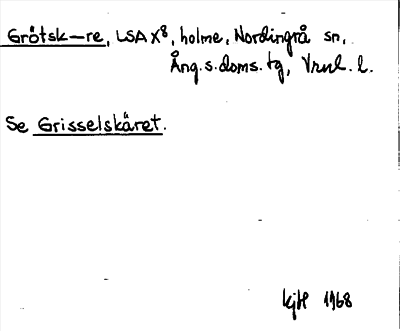 Grötsk—re, LSA X8, holme, Nordingrå sn,
Ång. s. doms. tg, Vrnl. l.
Se Grisselskäret.
KjH 1968